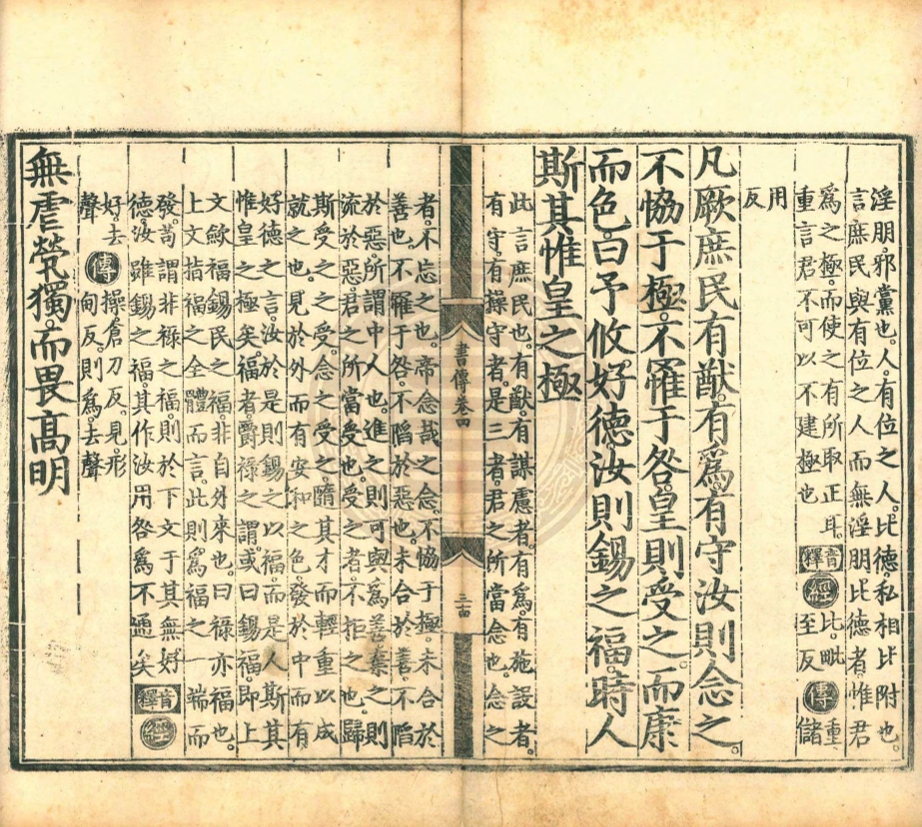 淫朋。邪黨也。人。有位之人。比德。私相比附也。
言庶民與有位之人。而無淫朋比德者。惟君
爲之極。而使之有所取正耳。
重言君不可以不建極也
音釋 經 比。毗至反 傳 重。儲
用反
凡厥庶民有猷。有爲有守汝則念之。
不恊于極。不罹于咎皇則受之。而康
而色。曰予攸好德汝則錫之福。時人
斯其惟皇之極
此言庶民也。有猷。有謀慮者。有爲。有施設者。
有守。有操守者。是三者。君之所當念也。念之
者。不忘之也。帝念哉之念。不恊于極。未合於
善也。不罹于咎。不陷於惡也。未合於善。不陷
於惡。所謂中人也。進之則可與爲善。棄之則
流於惡。君之所當受也。受之者。不拒之也。歸
斯受之之受。念之受之。隨其才而輕重以成
就之也。見於外而有安和之色。發於中而有
好德之言。汝於是則錫之以福。而是人斯其
惟皇之極矣。福者爵祿之謂。或曰錫福。即上
文斂福錫民之福。非自外來也。曰祿亦福也。
上文指福之全體而言。此則爲福之一端而
發。苟謂非祿之福。則於下文于其無好
德。汝雖錫之福。其作汝用咎爲不通矣 音釋 經
好。去聲 傳 操。倉刀反。見。形甸反。則爲。去聲
無虐煢獨。而畏高明
書傳卷四
三十四